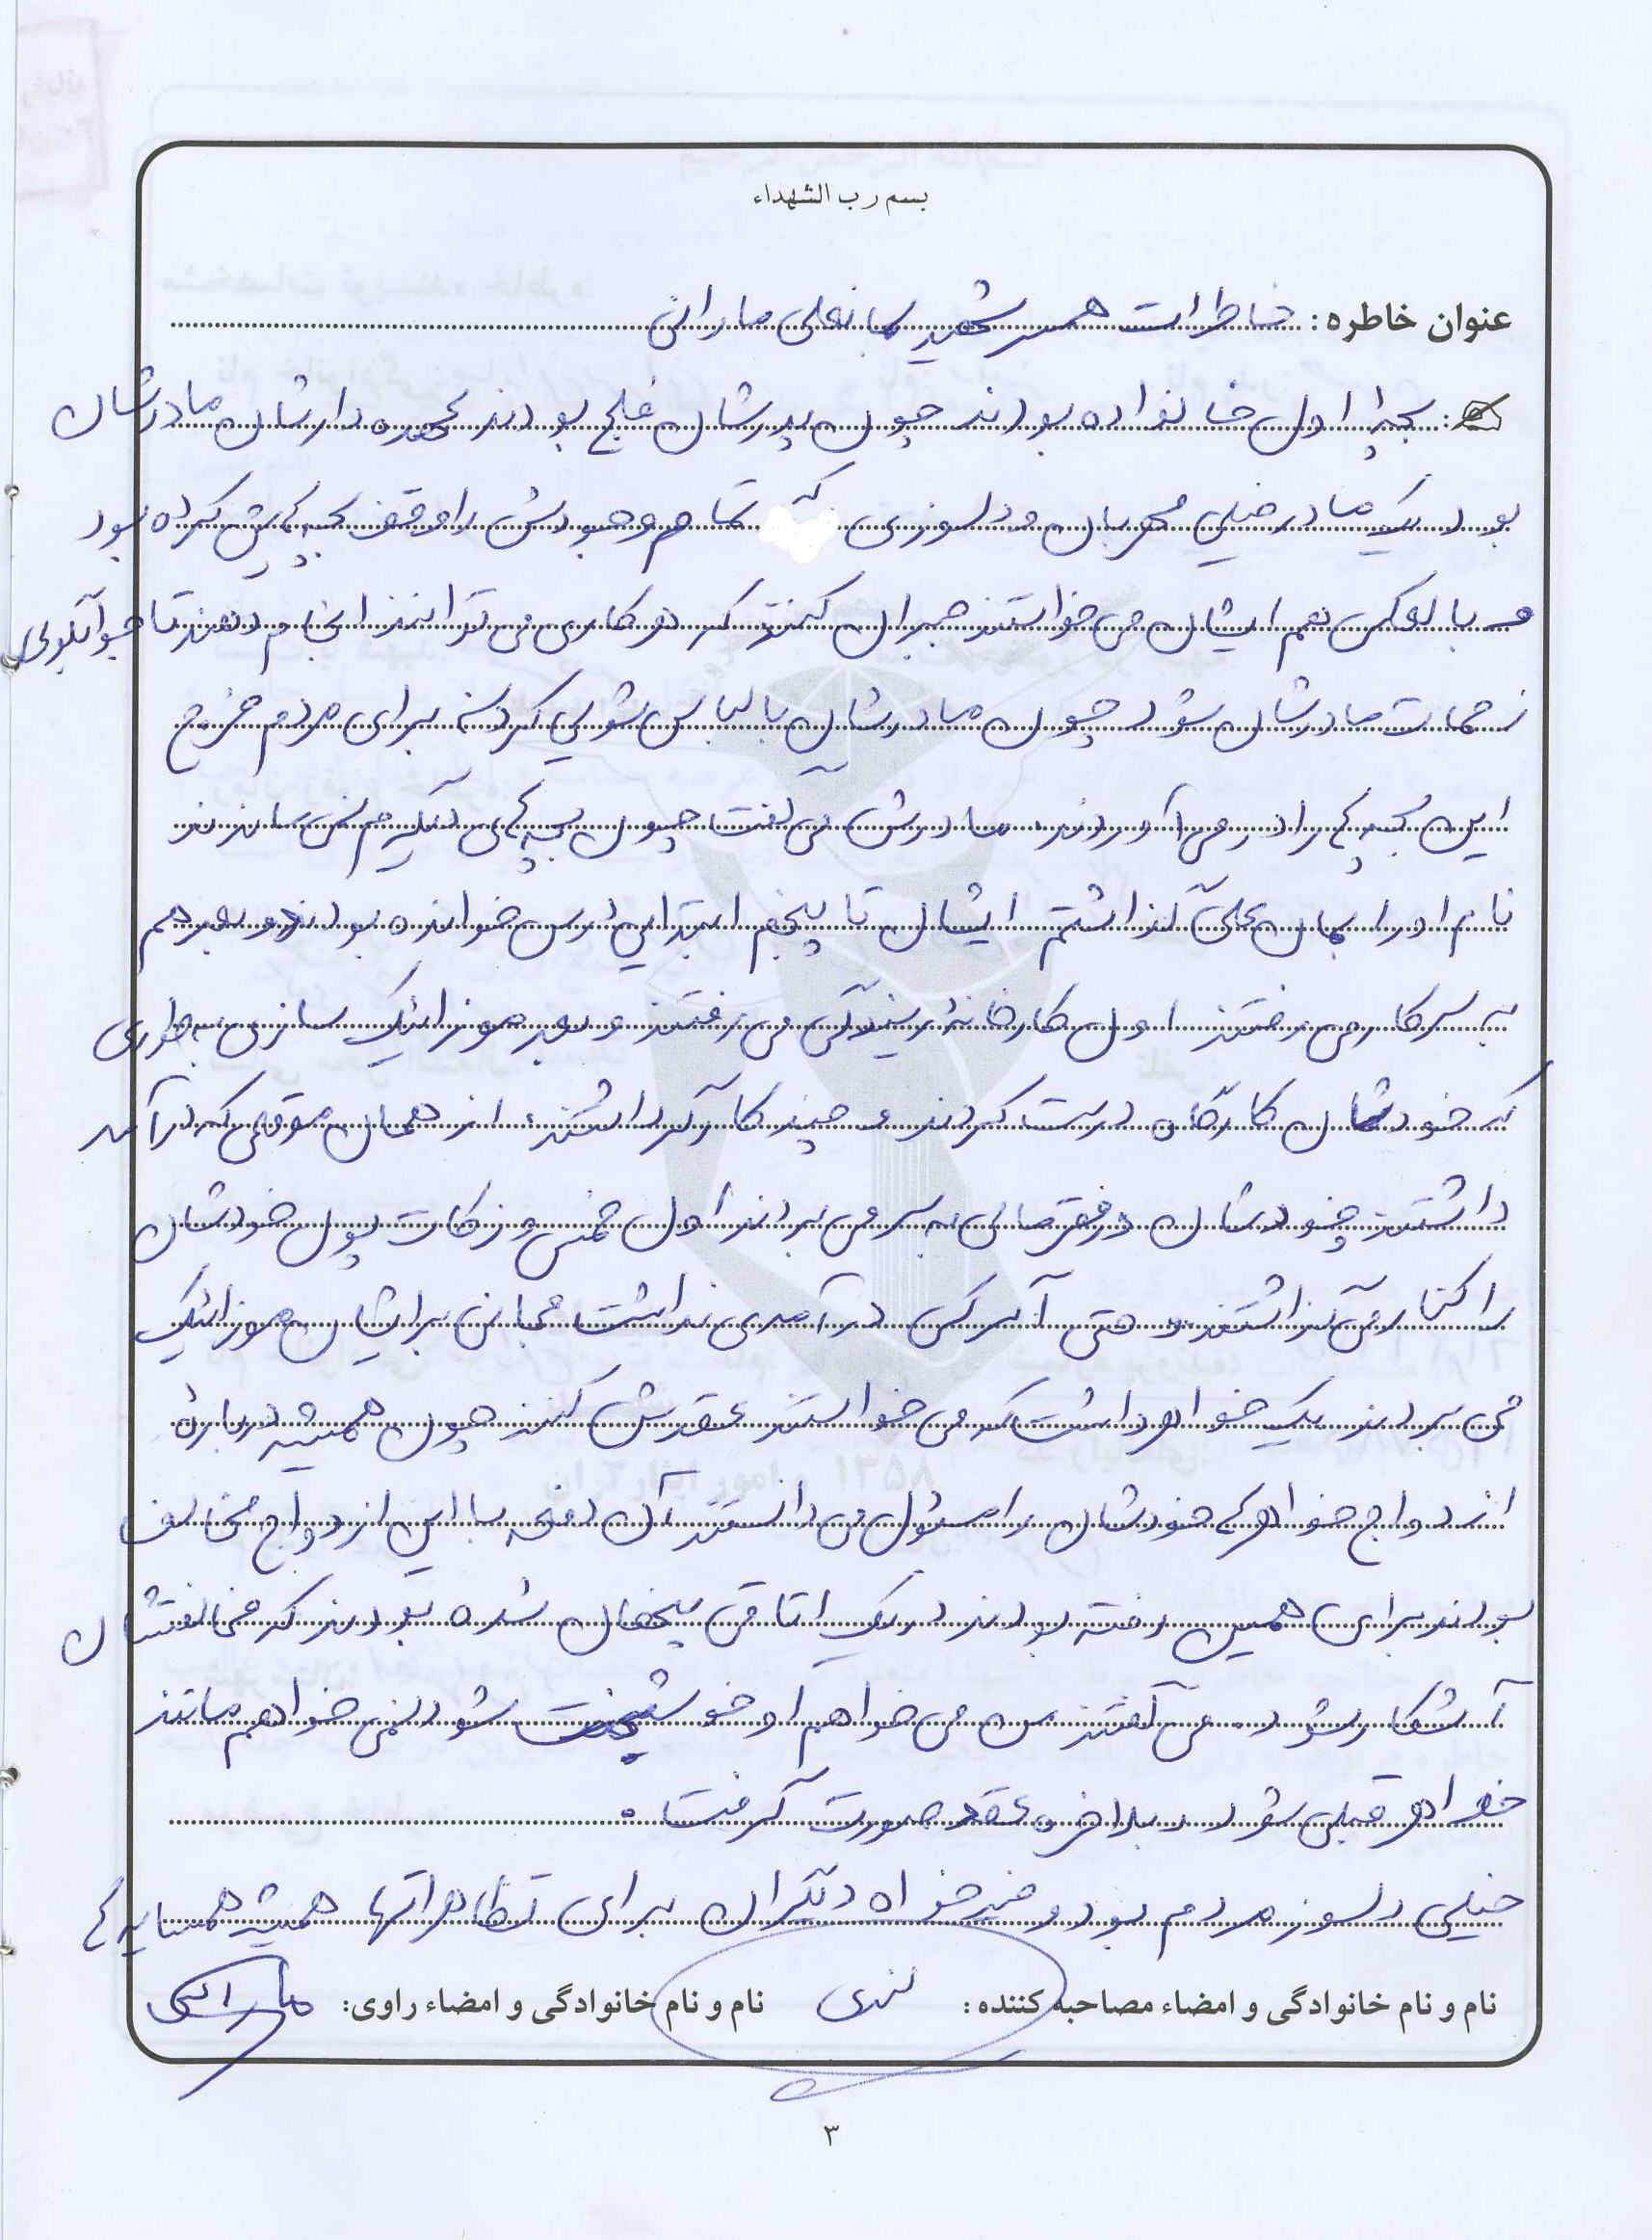 بسم رب الشهداء
عنوان خاطره: خاطرات همسر شهید بمانعلی مارانی
بچه اول خانواده بودند چون پدرشان فلج بودند عهده دارشان مادرشان
بود یک مادر خیلی مهربان و دلسوزی که تمام وجودش را وقف بچه هایش کرده بود
و بالعکس هم ایشان می خواستند جبران کنند که هر کاری می توانند انجام دهند تا جوابگوی
زحمات مادرشان شود چون مادرشان با لباس شویی کردن برای مردم خرج
این بچه ها را در می آوردند. مادرش می گفت چون بچه های دیگرم نمی ماندند
نام او را بمان علی گذاشتم ایشان تا پنجم ابتدایی درس خوانده بودند و بعد هم
به سر کار می رفتند اول کارخانۀ ریسندگی می رفتند و بعد موزائیک سازی به طوری
که خودشان کارگاه درست کردند و چند کارگر داشتند، از همان موقعی که درآمد
داشتند خودشان در فقر مالی به سر می بردند اول خمس و زکات پول خودشان
را کنار می گذاشتند و حتی اگر کسی درآمدی نداشت مجانی برایشان موزائیک
می بردند یک خواهر داشت که می خواستند عقدش کنند چون همیشه دربارۀ
ازدواج خواهرها خودشان را مسئول می دانستند آن دفعه با این ازدواج مخالف
بودند برای همین رفته بودند در یک اتاقی پنهان شده بودند که مخالفتشان
آشکار شود. می گفتند من می خواهم او خوشبخت شود نمی خواهم مانند
خواهر قبلی شود و بلاخره عقد صورت گرفت.
خیلی دلسوز مردم بود و خیرخواه دیگران برای تظاهراتها همیشه همسایه ها
نام و نام خانوادگی و امضاء مصاحبه کننده: نام و نام خانوادگی و امضاء راوی:
۳